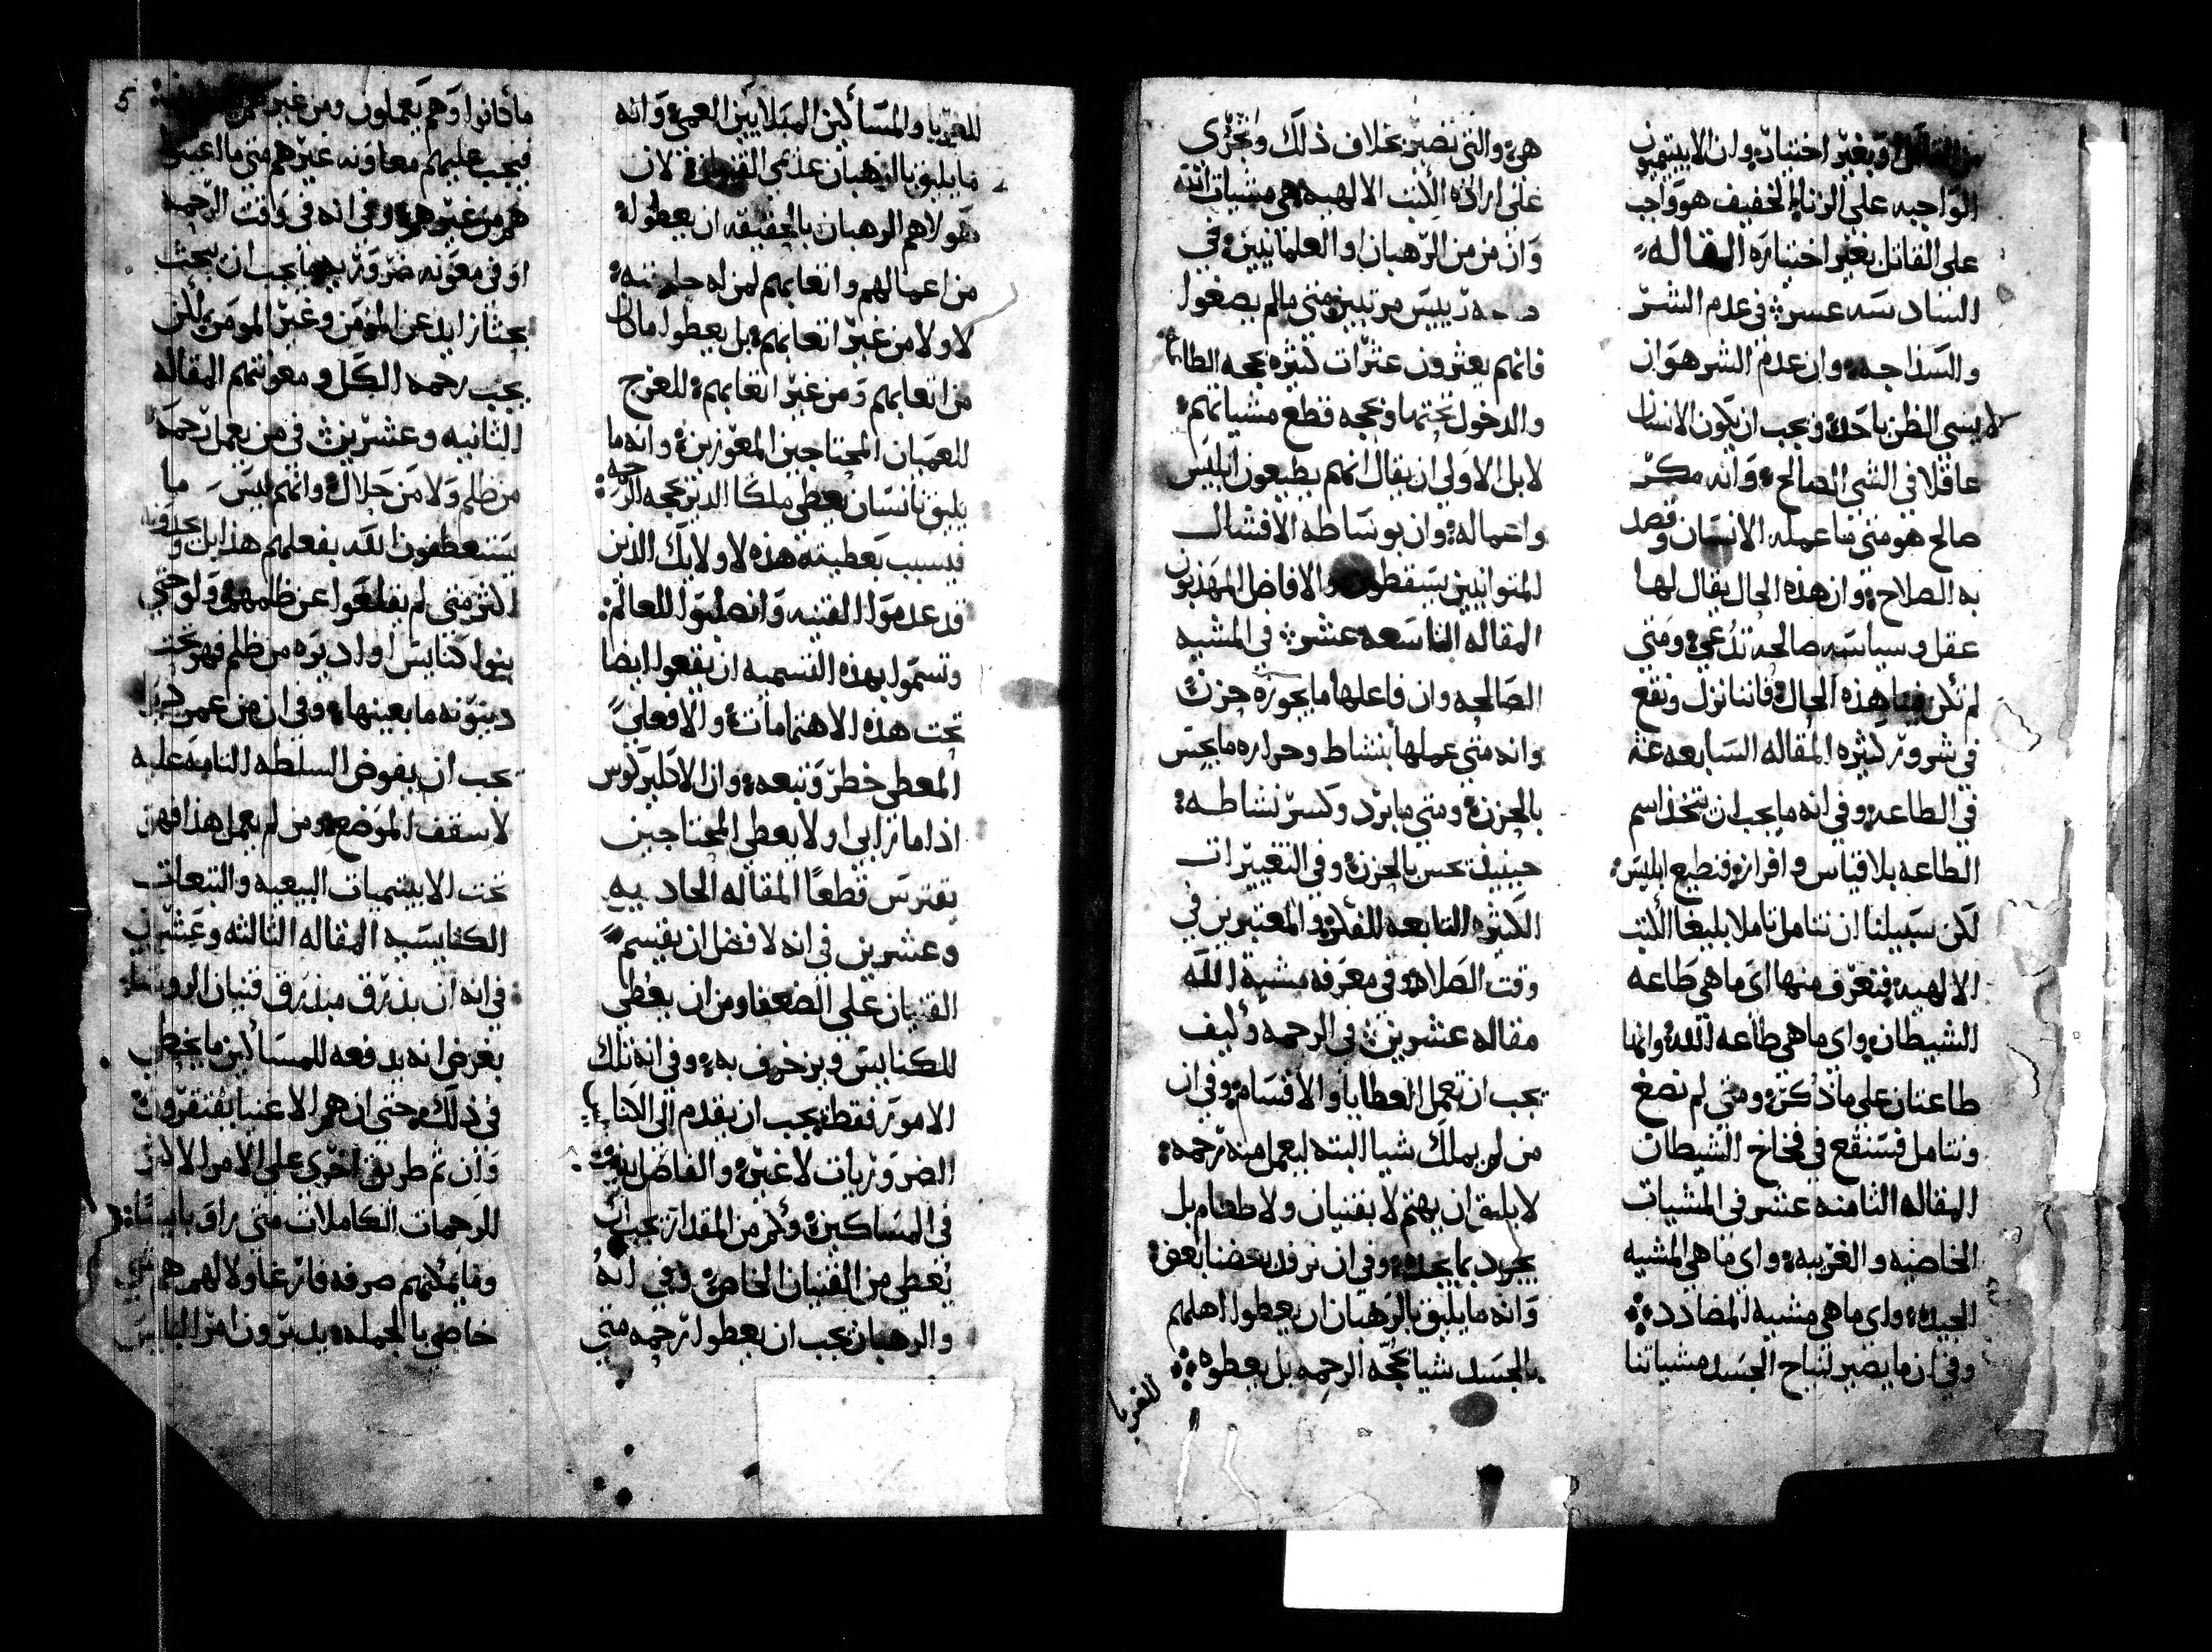 وبغير اختياره وان الابيتيميون
الواجبه على الزناء الخفيف هو واجب
على القاتل بغير اختياره المقاله
السادسه عشر في عدم الشر
والسذاجه وان عدم الشر هو ان
لا يسي الظن باحد ويجب ان يكون الانسان
عاقلا في الشي الصالح وانه مكر
صالح هو متى ما عمله الانسان وقصد
به الصلاح وان هذه الحال يقال لها
عقل وسياسه صالحه تدعى ومتى
لم تكن فينا هذه الحال فاننا نزل ونقع
في شرور كثيره المقاله السابعه عشر
في الطاعه وفي انه ما يجب ان نتخذ اسم
الطاعه بلا قياس وافراز فنطيع ابليس
لكن سبيلنا ان نتامل تاملا بليغا الكتب
الالهيه فنعرف منها اي ما هي طاعه
الشيطان واي ما هي طاعه الله وانها
طاعتان على ما ذكر ومتى لم نصغ
ونتامل فسنقع في فخاخ الشيطان
المقاله الثامنه عشر في المشيات
الخاصيه والغريبه واي ما هي المشيه
الجيده واي ما هي مشيه المضادد
وفي ان ما يصير لنياح الجسد مشياتنا
هي والتي تصير بخلاف ذلك وتجرى
على اراده الكتب الالهيه هي مشيات الله
وان من من الرهبان او العلمانيين في
رييس مرتبين متى ما لم يصغوا
فانهم يعثرون عثرات كثيره بحجه الطاعه
والدخول تحتها وبحجه قطع مشياتهم
لا بل الاولى ان يقال انهم يطيعون ابليس
واعماله وان بوساطه الافشال
المتوانيين يسقطون والافاضل المهذبون
المقاله التاسعه عشر في المشيه
الصالحه وان فاعلها ما يحوزه حزن
وانه متى عملها بنشاط وحراره ما يحس
بالحزن ومتى ما برد وكسر نشاطه
حينيذ يحس بالحزن وفي التغييرات
الكثيره التابعه للفكر والمعتبرين في
وقت الصلاه وفي معرفه مشية الله
مقاله عشرين في الرحمه وكيف
يجب ان تعمل العطايا والاقسام وفي ان
من لم يملك شيا البته ليعمل منه رحمه
لا يليق ان يهتم لا بقنيان ولا طعام بل
يجود بما يجده وفي ان نرفد بعضنا بعض
وانه ما يليق بالرهبان ان يعطوا اهلهم
بالجسد شيا بحجه الرحمه بل يعطوه
للغربا
للغربا والمساكين المبلايين العمي وانه
ما يليق بالرهبان عدمي القنيان لان
هولاهم الرهبان بالحقيقه ان يعطوا
من اعمالهم واتعابهم لمن له
لا ولا من غير اتعابهم بل يعطوا ما كان
من اتعابهم ومن غير اتعابهم للعرج
للعميان المحتاجين المعوزين وانه ما
يليق بانسان يعطي ملكا الدير بحجه الرحمه
فبسبب تعطيته هذه لاوليك الذين
قد عدموا القنيه وانصلبوا للعالم
وتسموا بهذه التسميه ان يقعوا ايضا
تحت هذه الاهتمامات والافعلى
المعطي خطر وتبعه وان الاكليريكوس
اذا ما رابى او لا يعطي المحتاجين
يفترس قطعا المقاله الحاديه
وعشرين في انه لافضل ان يقسم
القنيان على الضعفا ومن ان يعطى
للكنايس ويزخرف به وفي انه تلك
الامور فقط يجب ان يقدم الى الانا
الضروريات لا غير والفاضل
في المساكين وكم من المقدار يجب ان
يعطى من القنيان الخاص وفي انه
والرهبان يجب ان يعطوا رحمه متى
5
ما كانوا وهم يعملون ومن غير
فيجب عليهم معاونه غيرهم متى ما اعينوا
هم من غيرهم وفي انه في وقت الرحمه
او في معونه ضروره ما يجب ان يبحث
بحثا زايد عن المؤمن وغير المؤمن لكن
يجب رحمه الكل ومعونتهم المقاله
الثانيه وعشرين في من يعمل رحمه
من ظلم ولا من حلال وانهم ليس ما
يستعطفون الله بفعلهم هذا بل
اكثر متى لم يقلعوا عن ظلمهم ولو حتى
بنوا كنايس او اديره من ظلم فهو تحت
دينونه ما بعينها وفي ان من عمر ديرا
يجب ان يفوض السلطه التامه عليه
لاسقف الموضع ومن لم يعمل هذا فهو
تحت الابيتيميات البيعيه والتبعات
الكنايسيه المقاله الثالثه وعشرين
في انه ان بذرق مبذرق قنيان الروسا
بغرض انه يدفعه للمساكين ما يخطي
في ذلك حتى ان هم الاغنيا يفتقرون
وان ثم طريق اخرى على الامر الاكثر
للرحمات الكاملات متى راو بايسا
وما يمكنهم صرفه فارغا ولا لهم هم شي
خاصي بالجمله يدبرون امر البايس